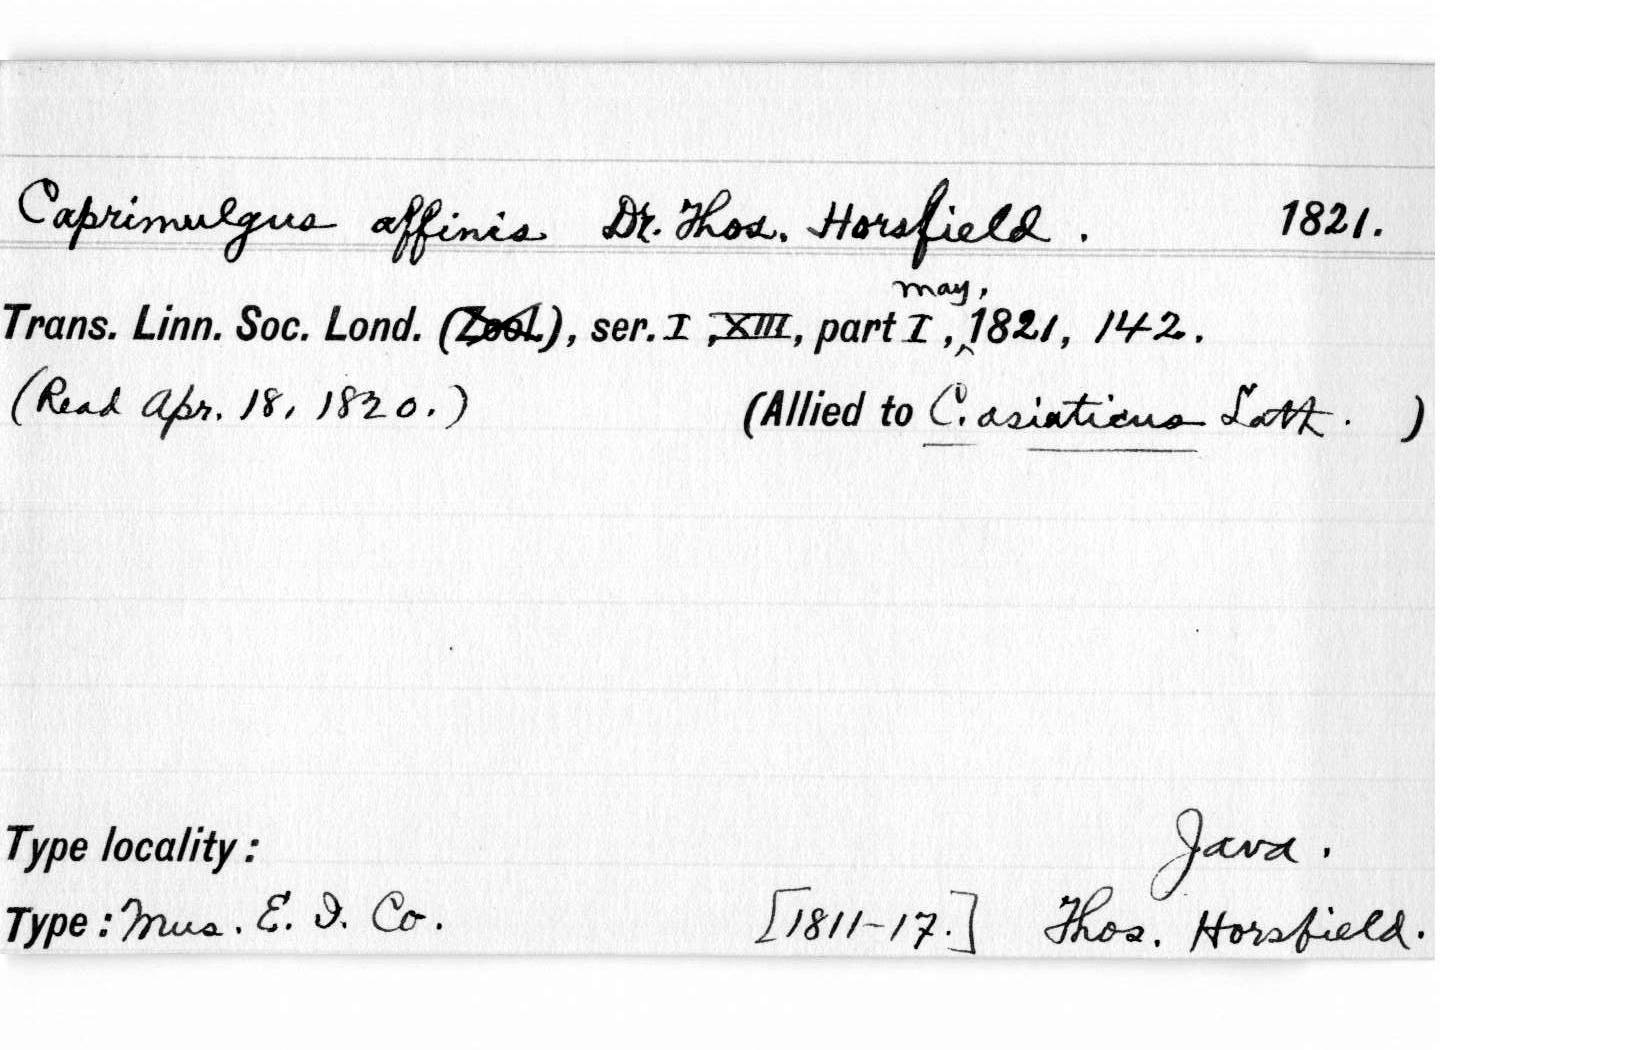 Caprimulgus affinis Dr. Thos. Horsfield. 1821.
may,
Trans. Linn. Soc. Lond. (Zool.), ser. I, XIII, part I, 1821, 142.
(Read Apr. 18, 1820.) (Allied to C. asiaticus Lath. )
Type locality: Java.
Type: Mus. E. I. Co. [1811-17.] Thos. Horsfield.